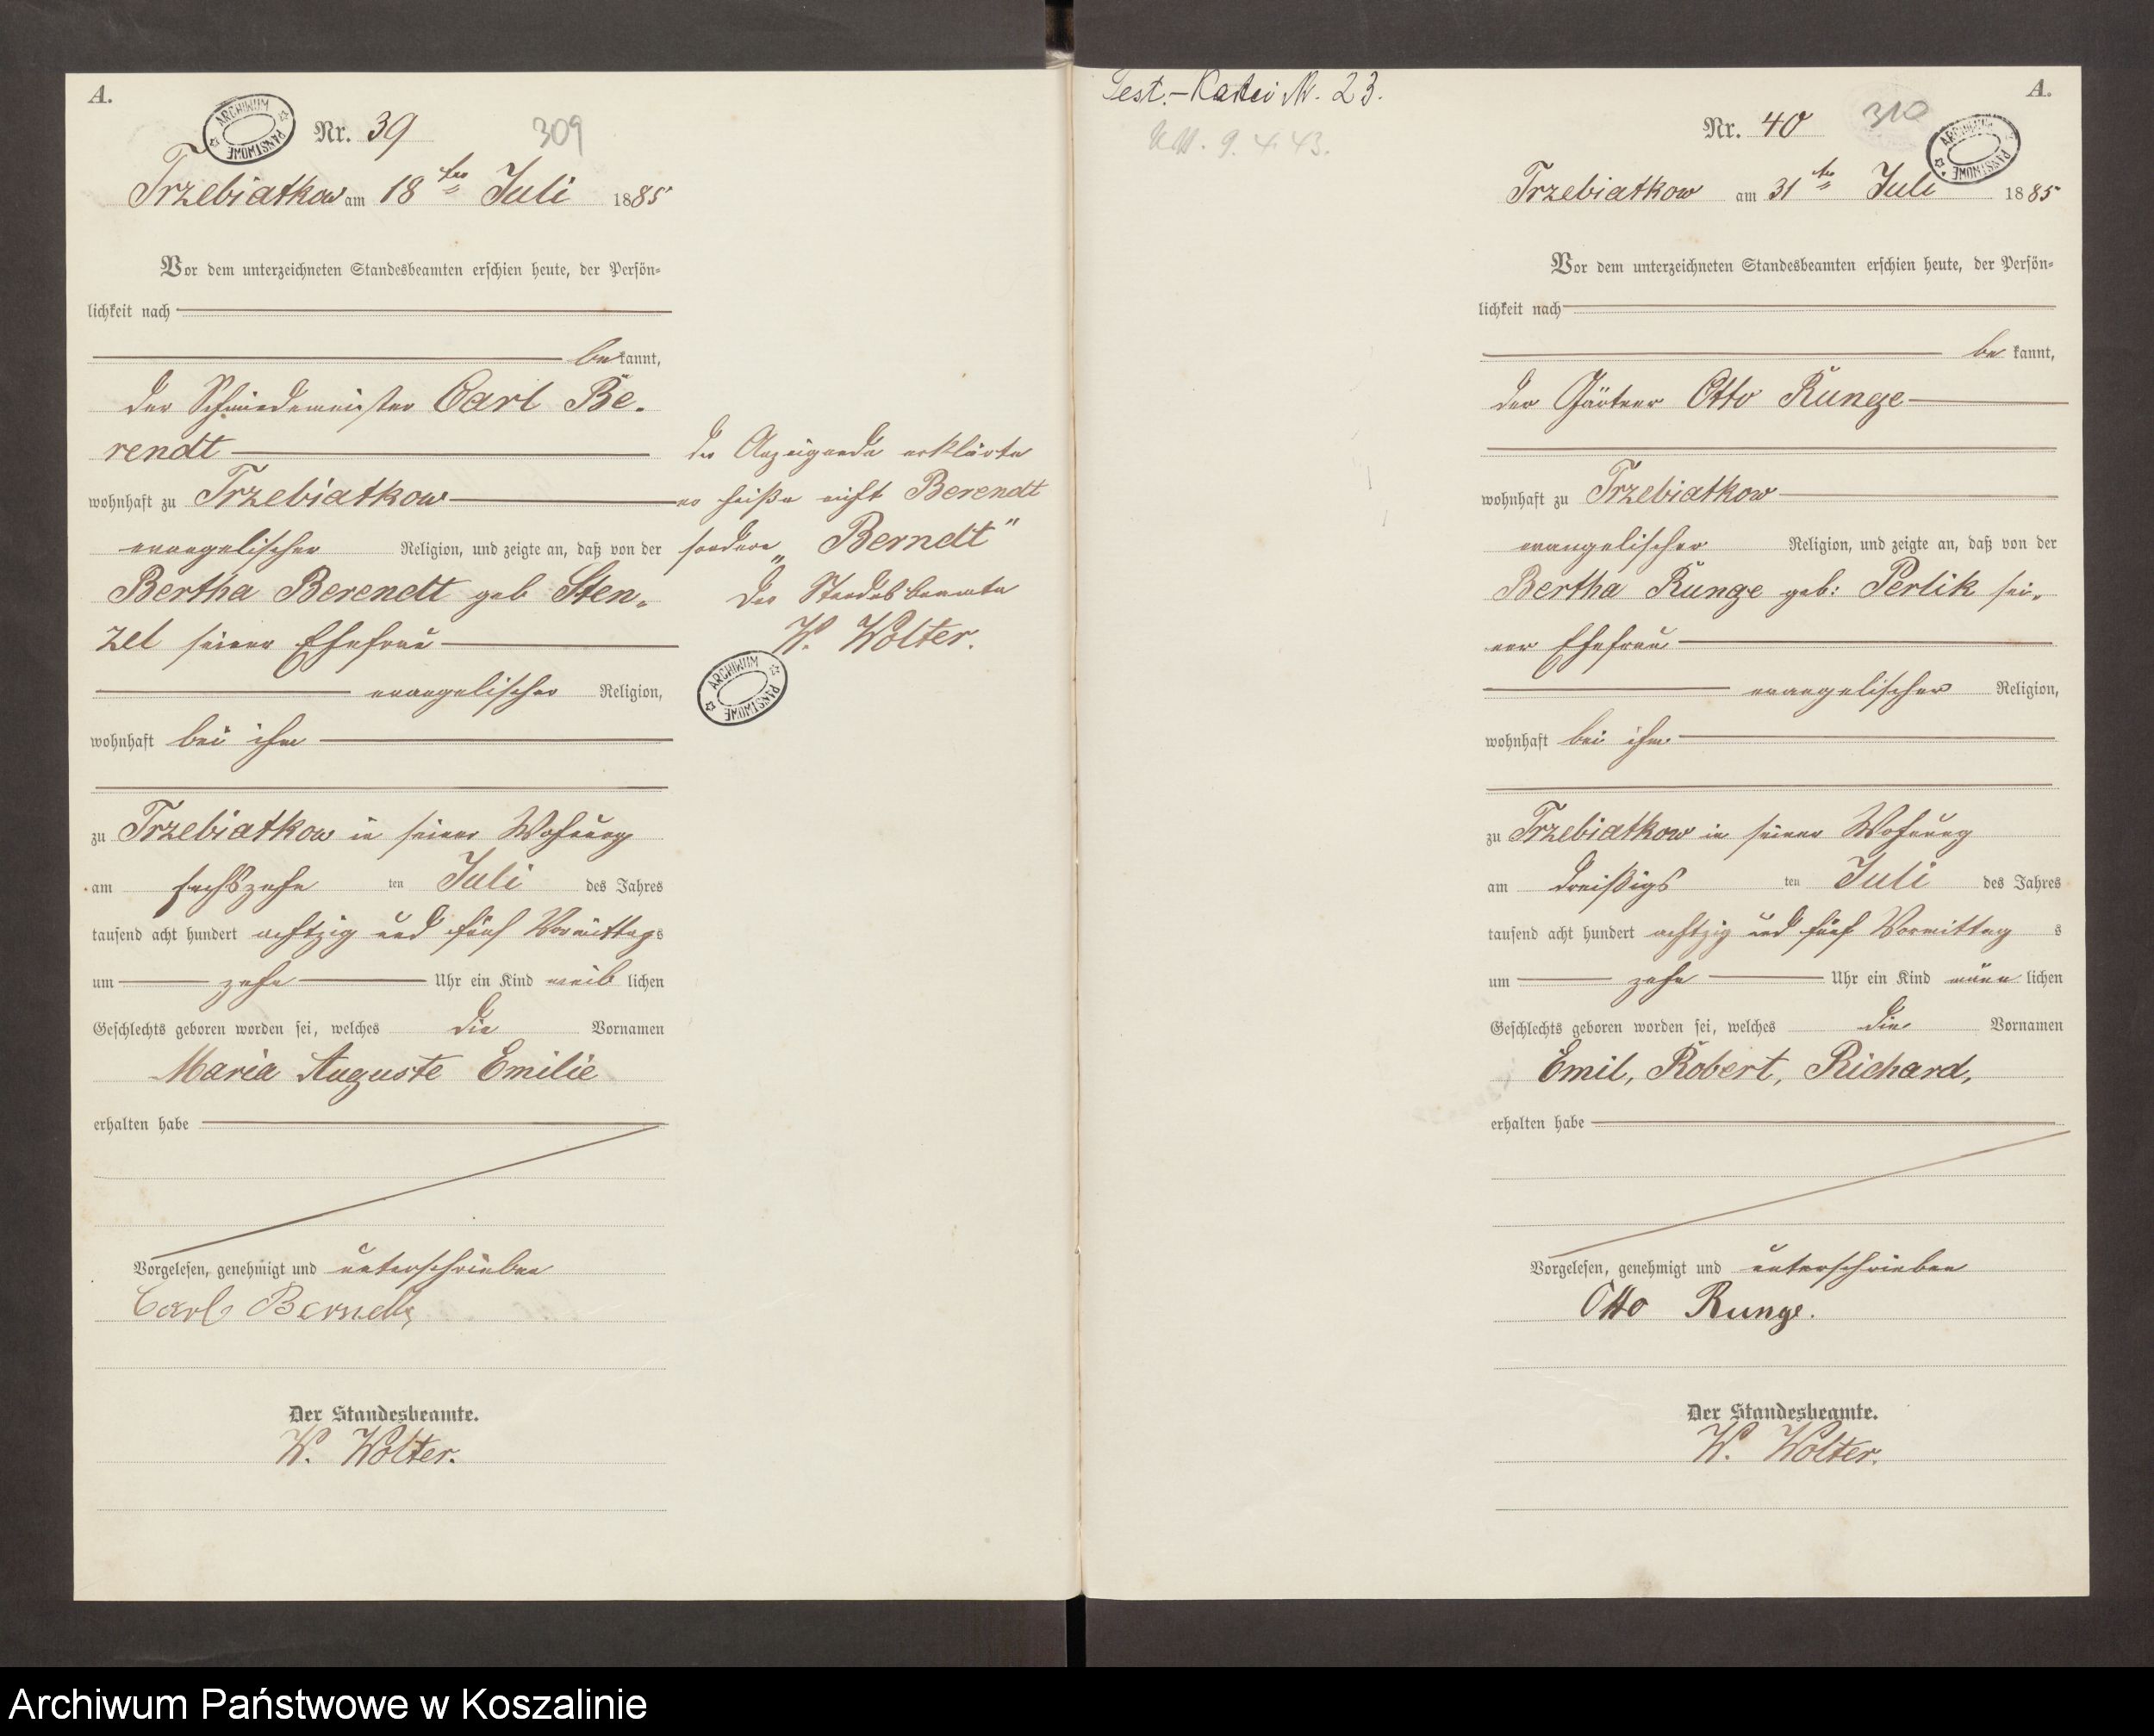 A.
ARCHIWUM PAŃSTWOWE
Nr. 39
309
Trzebiatkow am 18ten Juli 1885
Vor dem unterzeichneten Standesbeamten erschien heute, der Persön-
lichkeit nach
bekannt,
der Schmiedemeister Carl Be-
rendt
wohnhaft zu Trzebiatkow
evangelischer Religion, und zeigte an, daß von der
Bertha Berendt geb Sten-
zel seiner Ehefrau
evangelischer Religion,
wohnhaft bei ihm
zu Trzebiatkow in seiner Wohnung
am sechszehn ten Juli des Jahres
tausend acht hundert achtzig und fünf Vormittags
um zehn Uhr ein Kind weiblichen
Geschlechts geboren worden sei, welches die Vornamen
Maria Auguste Emilie
erhalten habe
Vorgelesen, genehmigt und unterschrieben
Carl Berndt
Der Standesbeamte.
W. Wolter.
der Anzeigende erklärte
er heiße nicht Berendt
sondern „Berndt"
Der Standesbeamte
W. Wolter.
ARCHIWUM PAŃSTWOWE
Test.-Kartei Nr. 23.
9. 4. 43.
A.
Nr. 40
310
ARCHIWUM PAŃSTWOWE
Trzebiatkow am 31ten Juli 1885
Vor dem unterzeichneten Standesbeamten erschien heute, der Persön-
lichkeit nach
bekannt,
der Gärtner Otto Runge
wohnhaft zu Trzebiatkow
evangelischer Religion, und zeigte an, daß von der
Bertha Runge geb: Perlik sei-
ner Ehefrau
evangelischer Religion,
wohnhaft bei ihm
zu Trzebiatkow in seiner Wohnung
am dreißigs ten Juli des Jahres
tausend acht hundert achtzig und fünf Vormittags
um zehn Uhr ein Kind männlichen
Geschlechts geboren worden sei, welches die Vornamen
Emil, Robert, Richard,
erhalten habe
Vorgelesen, genehmigt und unterschrieben
Otto Runge.
Der Standesbeamte.
W. Wolter.
Archiwum Państwowe w Koszalinie